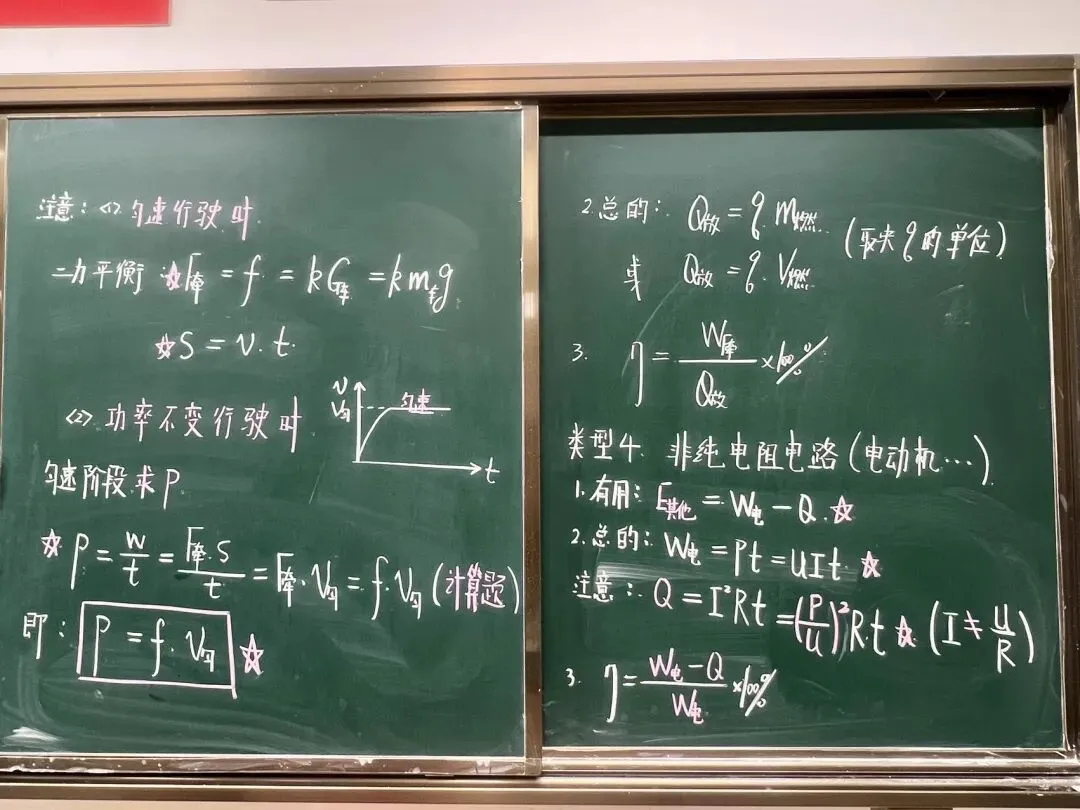 注意：<1>匀速行驶时
二力平衡 ☆F牵 = f = kG车 = km车g
☆S = v·t
<2>功率不变行驶时
v
v匀
匀速
t
匀速阶段求P
☆P = W/t = F牵·S/t = F牵·V匀 = f·V匀 (计算题)
即：P = f·V匀 ☆
2.总的：Q放 = q·m燃
或 Q放 = q·V燃
(取决q的单位)
3. η = W牵/Q放 ×100%
类型4 非纯电阻电路(电动机…)
1.有用：E其他 = W电 - Q ☆
2.总的：W电 = Pt = UIt ☆
注意：Q = I²Rt = (P/U)²R·t ☆ (I ≠ U/R)
3. η = W电-Q/W电 ×100%